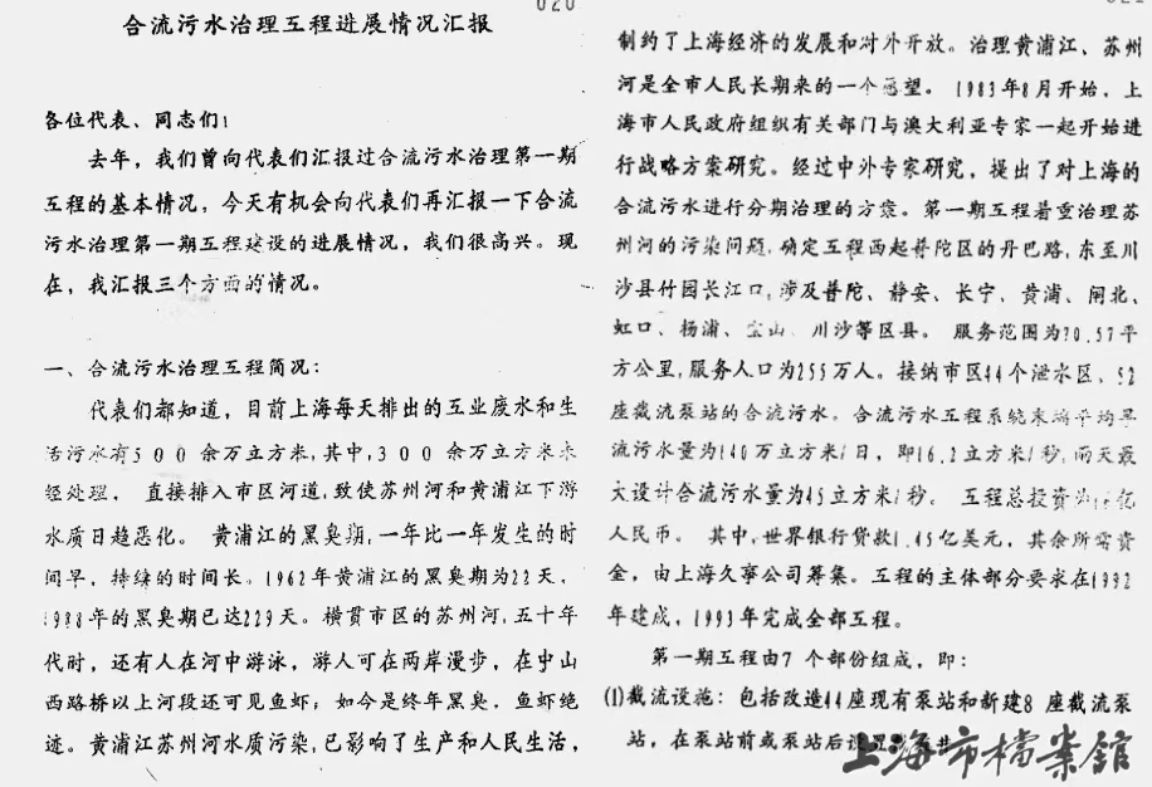 020
合流污水治理工程进展情况汇报
各位代表、同志们！
去年，我们曾向代表们汇报过合流污水治理第一期
工程的基本情况，今天有机会向代表们再汇报一下合流
污水治理第一期工程建设的进展情况，我们很高兴。现
在，我汇报三个方面的情况。
一、合流污水治理工程简况：
代表们都知道，目前上海每天排出的工业废水和生
活污水有500余万立方米，其中，300余万立方米未
经处理，直接排入市区河道，致使苏州河和黄浦江下游
水质日趋恶化。黄浦江的黑臭期，一年比一年发生的时
间早，持续的时间长。1962年黄浦江的黑臭期为22天，
1988年的黑臭期已达229天。横贯市区的苏州河，五十年
代时，还有人在河中游泳，游人可在两岸漫步，在中山
西路桥以上河段还可见鱼虾；如今是终年黑臭，鱼虾绝
迹。黄浦江苏州河水质污染，已影响了生产和人民生活，
制约了上海经济的发展和对外开放。治理黄浦江、苏州
河是全市人民长期来的一个愿望。1983年8月开始，上
海市人民政府组织有关部门与澳大利亚专家一起开始进
行战略方案研究。经过中外专家研究，提出了对上海的
合流污水进行分期治理的方案。第一期工程着重治理苏
州河的污染问题，确定工程西起普陀区的丹巴路，东至川
沙县竹园长江口，涉及普陀、静安、长宁、黄浦、闸北、
虹口、杨浦、宝山、川沙等区县。服务范围为70.57平
方公里，服务人口为255万人。接纳市区44个泄水区、52
座截流泵站的合流污水。合流污水工程系统末端平均旱
流污水量为140万立方米/日，即16.2立方米/秒，雨天最
大设计合流污水量为45立方米/秒。工程总投资为16亿
人民币。其中，世界银行贷款1.45亿美元，其余所需资
金，由上海久事公司筹集。工程的主体部分要求在1992
年建成，1993年完成全部工程。
第一期工程由7个部份组成，即：
(1)截流设施：包括改造44座现有泵站和新建8座截流泵
站，在泵站前或泵站后设置
上海市檔案館